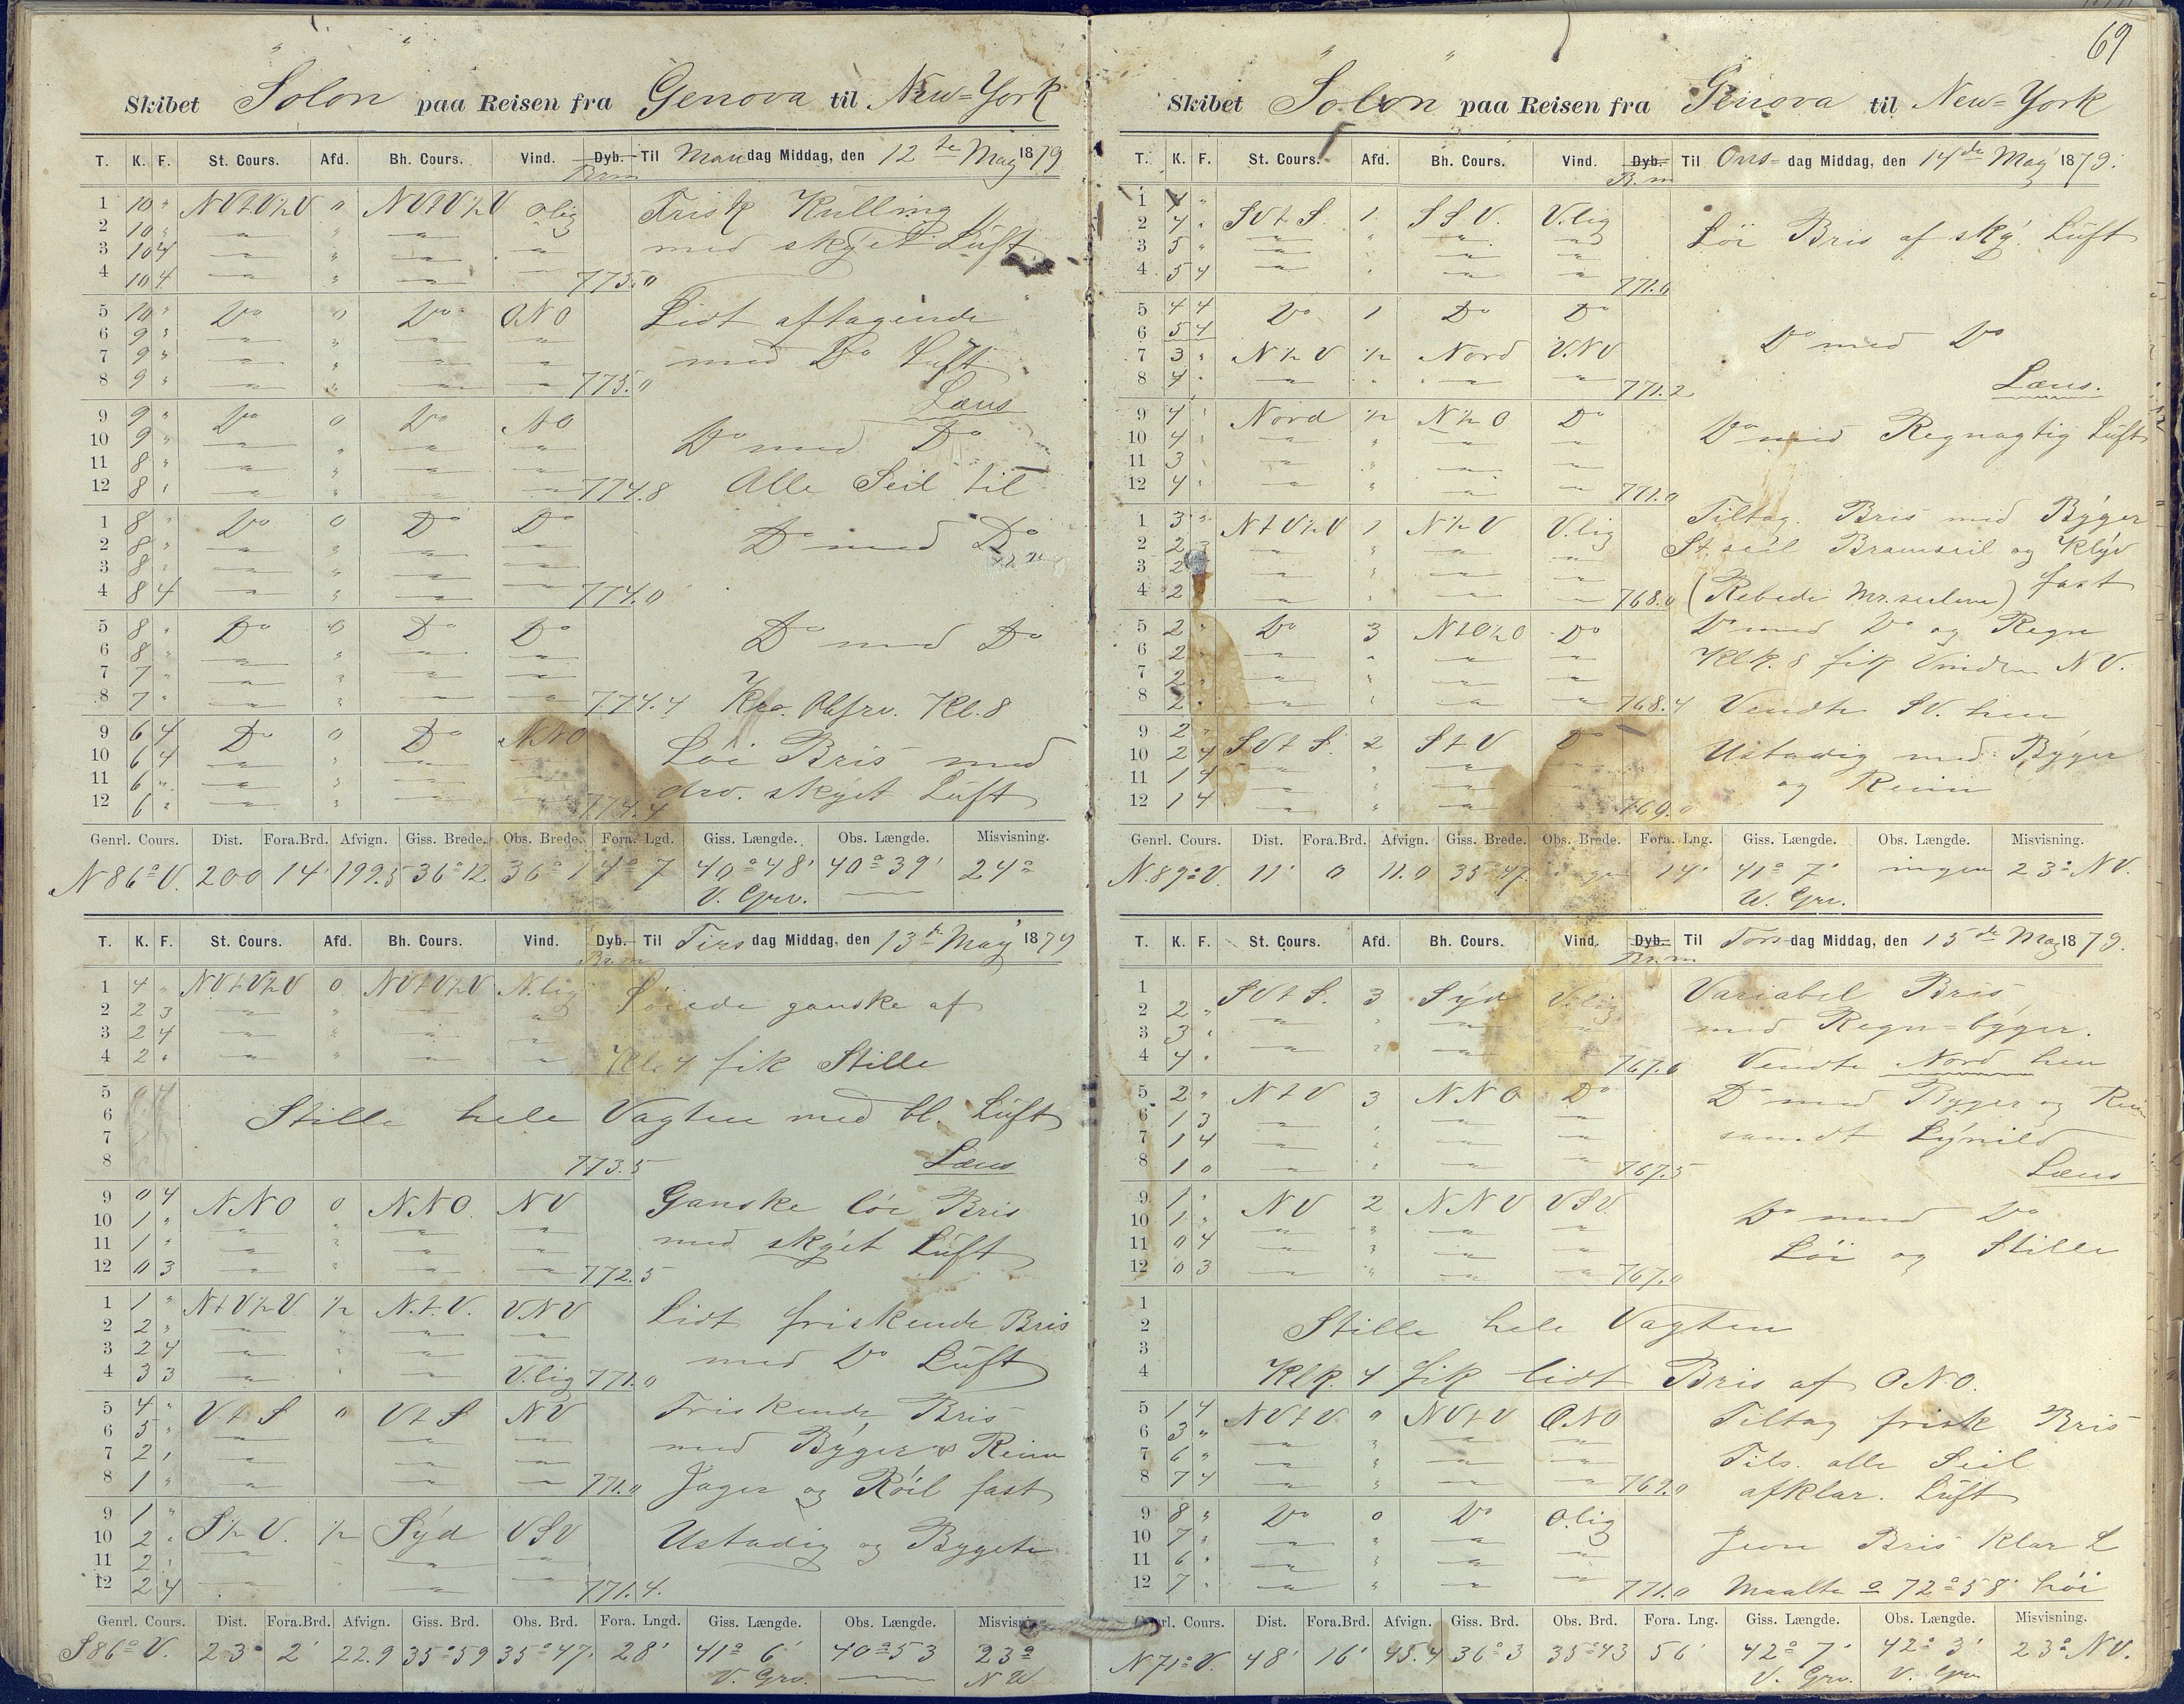 Skibet "Solon" paa Reisen fra Genova til New=York
T. K. F. St. Cours. Afd. Bh. Cours. Vind. Dyb. Til Mandag Middag, den 12te May 1879
Brm
1 10 " NVtV½V " NVtV½V O.lig Frisk Kulling
2 10 " " " " " med skyet Luft
3 10 4 " " " "
4 10 4 " " " " 775.0
5 10 " Do 0 Do ONO Lidt aftagende
6 9 " " " " "
7 9 " " " " " med Do Luft
8 9 " " " " " 775.0 Læns
9 9 " Do 0 Do NO Do med Do
10 9 " " " " "
11 8 " " " " "
12 8 " " " " " 774.8 Alle Seil til
1 8 " Do 0 Do Do Do med Do
2 8 " " " " "
3 8 " " " " "
4 8 4 " " " " 774.0
5 8 " Do 0 Do Do Do med Do
6 8 " " " " "
7 7 " " " " "
8 7 " " " " " 774.4 Kro. Obsrv. Kl. 8
9 6 4 Do 0 Do NNO Løi Bris med
10 6 4 " " " "
11 6 " " " " " drv. skyet Luft
12 6 " " " " " 774.4
Genrl. Cours. Dist. Fora.Brd. Afvign. Giss. Brede. Obs. Brede. Fora. Lgd. Giss. Længde. Obs. Længde. Misvisning.
N 86° V. 200 14' 199.5 36° 12 36° 1 4° 7 40° 48' 40° 39' 24°
V. Grv.
T. K. F. St. Cours. Afd. Bh. Cours. Vind. Dyb. Til Tirsdag Middag, den 13te May 1879
Br.m
1 4 " NVtV½V 0 NVtV½V N.lig Løiede ganske af
2 2 3 " " " "
3 2 4 " " " "
4 2 " " " " " Kl. 4 fik Stille
5 0 4
6 Stille hele Vagten med bl. Luft
7
8 773.5 Læns
9 0 4 NNO 0 NNO NV Ganske løi Bris
10 1 " " " " "
11 1 " " " " " med skyet Luft
12 0 3 " " " " 772.5
1 1 " NtV½V ½ N.t.V. VNV Lidt friskende Bris
2 2 " " " " "
3 2 4 " " " " med Do Luft
4 3 3 " " " V.lig 771.0
5 4 " VtS " VtS NV Friskende Bris
6 5 " " " "
7 2 " " " " med Byger & Reinn
8 1 " " " " 771.0 Jager og Røil fast
9 1 "
10 2 " S½V. ½ Syd VSV Ustadig og Bygete
11 2 " " " "
12 2 4 " " 771.4.
Genrl. Cours. Dist. Fora.Brd. Afvign. Giss. Brd. Obs. Brd. Fora. Lngd. Giss. Længde. Obs. Længde. Misvisning.
S 86° V. 23' 2' 22.9 35° 59 35° 47. 28' 41° 6' 40° 53 23°
V. Grv. N W
69
Skibet "Solon" paa Reisen fra Genova til New=York
T. K. F. St. Cours. Afd. Bh. Cours. Vind. Dyb. Til Onsdag Middag, den 14de May 1879.
B.m
1 4 "
2 4 " SVtS. 1. SSV. V.lig Løi Bris af sky. Luft
3 5 " " " " "
4 5 4 " " " " 771.0
5 4 4 Do 1 Do Do
6 5 4 Do med Do
7 3 " N½V ½ Nord VNV
8 4 " " " " " 771.2 Læns.
9 4 " Nord ½ N½O Do Do med Regnagtig Luft
10 4 " " " " "
11 3 " " " " "
12 4 " " " " " 771.0
1 3 " NtV½V 1 N½V V.lig Tiltag. Bris med Byger
2 2 3 " " " " St.seil Bramseil og Klyv
3 2 " " " " fast
4 2 " " " " 768.0 (Rebede Mr.seilene)
5 2 " Do 3 NtO½O Do Do med Do og Regn
6 2 " " " " " Klk. 8 fik Vinden NV.
7 2 " " " " "
8 2 " " " " " 768.4 Vendte SV. hen
9 2 "
10 2 4 SVtS. 2 StV Do Ustadig med Byger
11 1 4 " " " " og Reinn
12 1 4 " " " " 769.0
Genrl. Cours. Dist. Fora.Brd. Afvign. Giss. Brede. Obs. Brede. Fora. Lng. Giss. Længde. Obs. Længde. Misvisning.
N. 89° V. 11' 0 11.0 35° 47. ingen 14' 41° 7' ingen 23° NV.
W. Grv.
T. K. F. St. Cours. Afd. Bh. Cours. Vind. Dyb. Til Torsdag Middag, den 15de May 1879.
Br.m
1 SVtS. 3 Syd V.lig Variabel Bris
2 2 "
3 3 " " " " " med Regn=byger.
4 4 " " " " 767.6 Vendte Nord hen
5 2 " NtV 3 NNO Do Do med Byger og Rein
6 1 3 " " " "
7 1 4 " " " " samdt Lynild
8 1 0 " " " " 767.5 Læns
9 1 " NV 2 NNV VSV. Do med Do
10 1 " " " " "
11 0 4 " " " " Løi og Stille
12 0 3 " " " " 767.0
1
2 Stille hele Vagten
3
4 Klk. 4 fik lidt Bris af ONO.
5 1 4 NVtV " NVtV ONO Tiltag frisk Bris
6 3 " " " " "
7 6 " " " " " Tils. alle Seil
8 7 4 " " " " 769.0 afklar. Luft
9 8 " Do 0 Do O.lig
10 7 " " " " " Jevn Bris klar L
11 6 " " " " "
12 7 " " " " " 771.0 Maalte 72° 58' høi
Genrl. Cours. Dist. Fora.Brd. Afvign. Giss. Brd. Obs. Brd. Fora. Lng. Giss. Længde. Obs. Længde. Misvisning.
N 71° V. 48' 16' 45.4 36° 3 35° 43 56' 42° 7' 42° 3' 23° NV.
V. Grv. V. Grv.